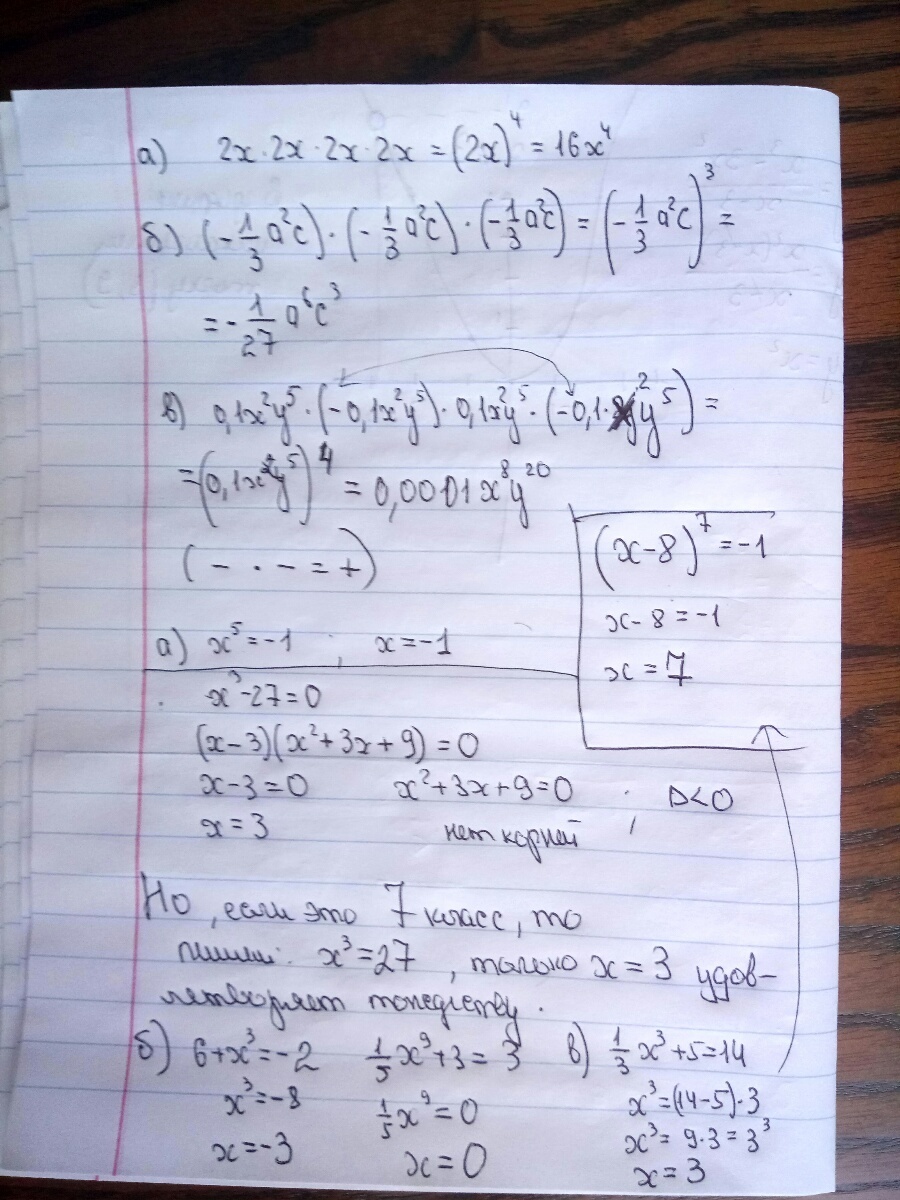 а) 2x · 2x · 2x · 2x = (2x)⁴ = 16x⁴
б) (-1/3 a²c) · (-1/3 a²c) · (-1/3 a²c) = (-1/3 a²c)³ =
= -1/27 a⁶c³
в) 0,1x²y⁵ · (-0,1x²y⁵) · 0,1x²y⁵ · (-0,1·x²y⁵) =
= (0,1x²y⁵)⁴ = 0,0001x⁸y²⁰
(- · - = +)
(x-8)⁷ = -1
x-8 = -1
x = 7
а) x⁵ = -1 ; x = -1
x³-27=0
(x-3)(x²+3x+9)=0
x-3=0 x²+3x+9=0 ; D<0
x=3 нет корней
Но, если это 7 класс, то
пиши: x³=27, только x=3 удов-
летворяет тождеству.
б) 6+x³=-2 1/5 x⁹+3=3 в) 1/3 x³+5=14
x³=-8 1/5 x⁹=0 x³=(14-5)·3
x³=9·3=3³
x=-3 x=0 x=3